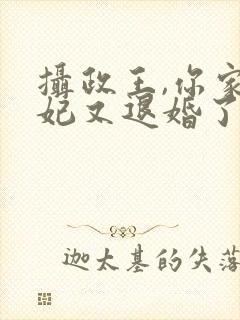 攝政王,你家
妃又退婚了
迦太基的失落